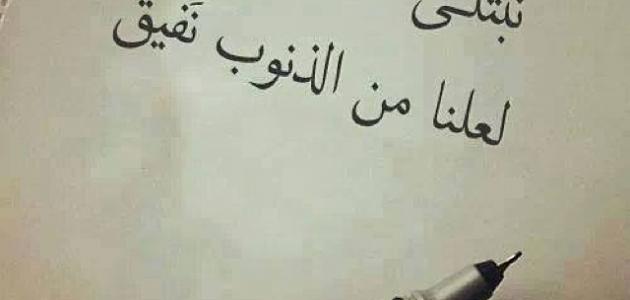 نبتلى
لعلنا من الذنوب نَفيق